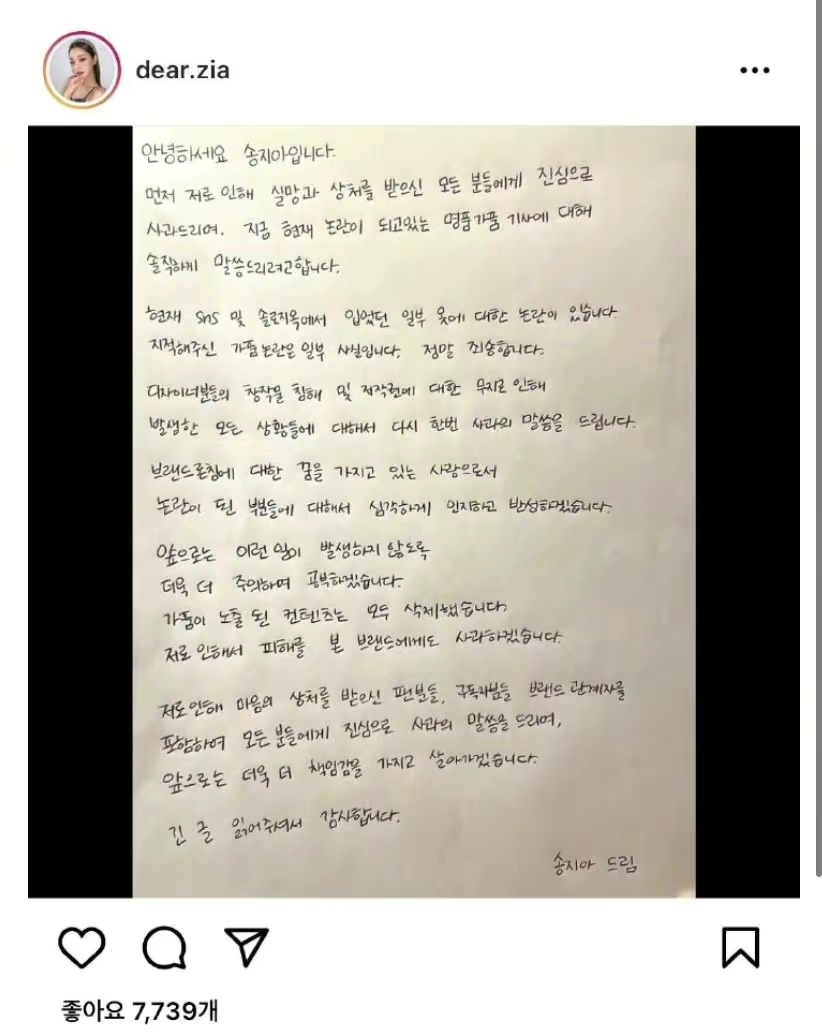 dear.zia
안녕하세요 송지아입니다.
먼저 저로 인해 실망과 상처를 받으신 모든 분들에게 진심으로
사과드리며, 지금 현재 논란이 되고있는 명품가품 기사에 대해
솔직하게 말씀드리려고합니다.
현재 SNS 및 솔로지옥에서 입었던 일부 옷에 대한 논란이 있습니다.
지적해주신 가품논란은 일부 사실입니다. 정말 죄송합니다.
디자이너분들의 창작물 침해 및 저작권에 대한 무지로 인해
발생한 모든 상황들에 대해서 다시 한번 사과의 말씀을 드립니다.
브랜드론칭에 대한 꿈을 가지고 있는 사람으로서
논란이 된 부분들에 대해서 심각하게 인지하고 반성하겠습니다.
앞으로는 이런일이 발생하지 않도록
더욱 더 주의하며 공부하겠습니다.
가품이 노출 된 컨텐츠는 모두 삭제했습니다.
저로인해서 피해를 본 브랜드에게도 사과하겠습니다.
저로인해 마음의 상처를 받으신 팬분들, 구독자분들 브랜드 관계자를
포함하여 모든 분들에게 진심으로 사과의 말씀을 드리며,
앞으로는 더욱 더 책임감을 가지고 살아가겠습니다.
긴 글 읽어주셔서 감사합니다.
송지아 드림
좋아요 7,739개